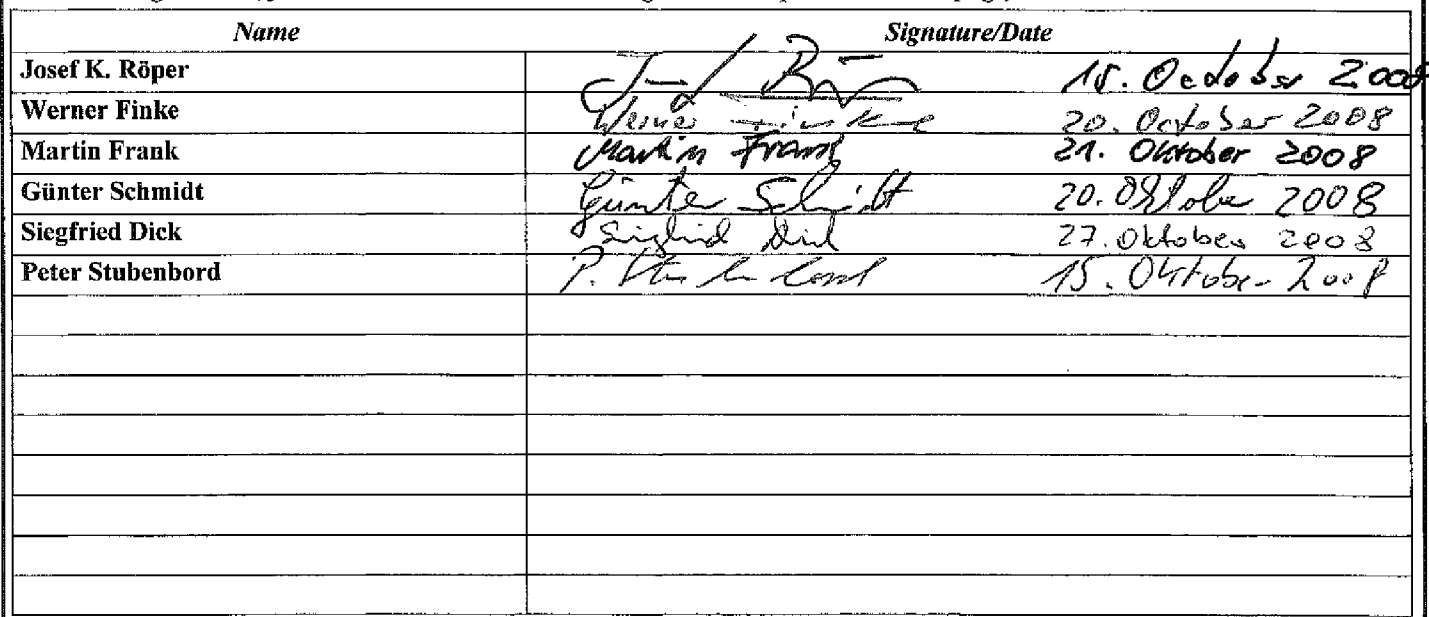 Name Signature/Date
Josef K. Röper 15. October 2008
Werner Finke Werner Finke 20. October 2008
Martin Frank Martin Frank 21. Oktober 2008
Günter Schmidt Günter Schmidt 20. Oktober 2008
Siegfried Dick Siegfried Dick 27. Oktober 2008
Peter Stubenbord P. 15. Oktober 2008